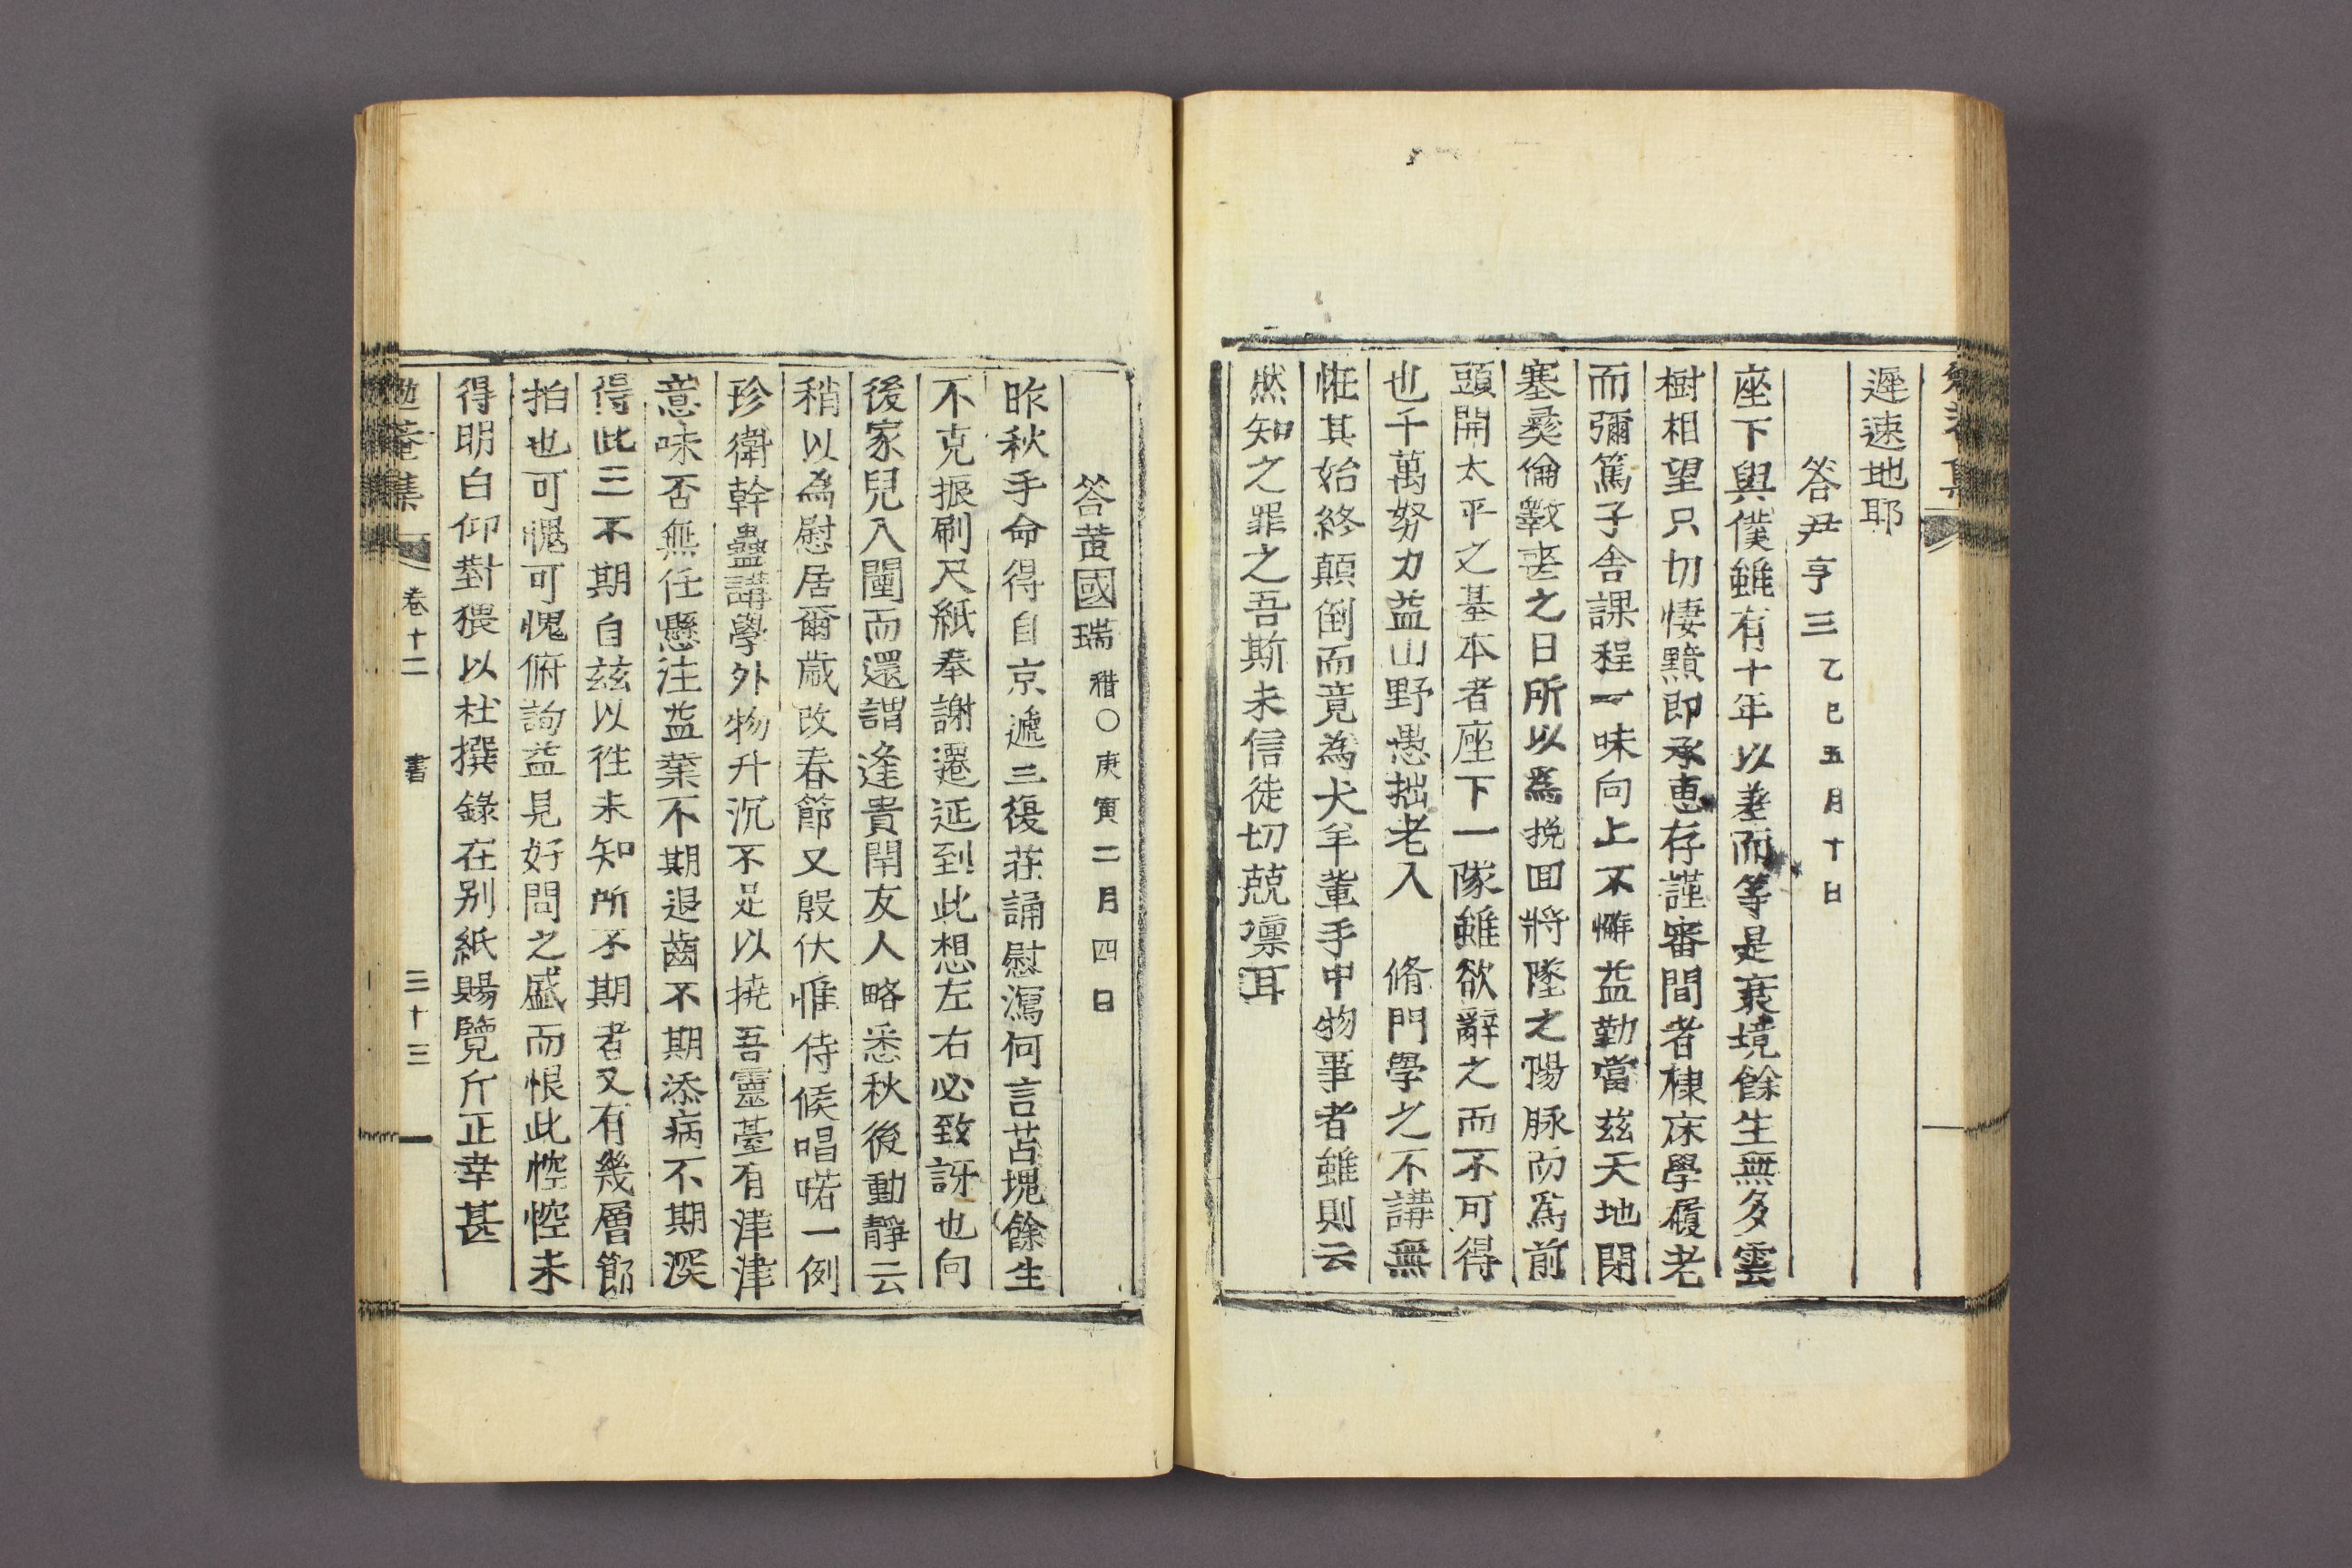 遲速地耶
答尹亨三 乙巳五月十日
座下與僕雖有十年以差而等是衰境餘生無多雲
樹相望只切悽黯即承惠存謹審間者棣床學履老
而彌篤子舍課程一味向上不懈益勤當玆天地閉
塞彛倫斁喪之日所以爲挽回將墜之陽脉而爲前
頭開太平之基本者座下一隊雖欲辭之而不可得
也千萬努力益山野愚拙老入　脩門學之不講無
恠其始終顛倒而竟為犬羊輩手中物事者雖則云
然知之罪之吾斯未信徒切兢凜耳
答黃國瑞 稓○庚寅二月四日
昨秋手命得自京遞三復莊誦慰瀉何言苫塊餘生
不克振刷尺紙奉謝遷延到此想左右必致訝也向
後家兒入闉而還謂逢貴閈友人略悉秋後動靜云
稍以為慰居爾歲改春節又殷伏惟侍候唱喏一例
珍衛幹蠱講學外物升沉不足以撓吾靈臺有津津
意味否無任懸注益葉不期退齒不期添病不期深
得此三不期自玆以徃未知所不期者又有幾層節
拍也可愧可愧俯詢益見好問之盛而恨此悾悾未
得明白仰對猥以杜撰錄在別紙賜覽斤正幸甚
勉菴集 卷十二 書 三十三